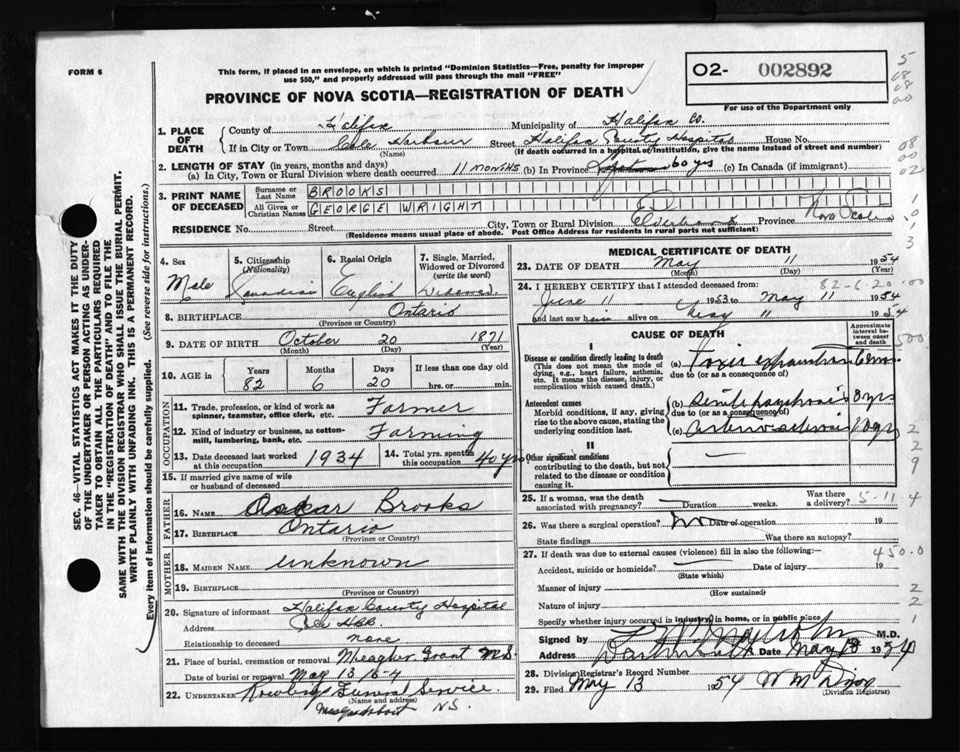 FORM 6
This form, if placed in an envelope, on which is printed "Dominion Statistics—Free, penalty for improper
use $50," and properly addressed will pass through the mail "FREE"
PROVINCE OF NOVA SCOTIA—REGISTRATION OF DEATH
O2- 002892
For use of the Department only
5
08
08
00
08
00
02
1
0
1
3
SEC. 46—VITAL STATISTICS ACT MAKES IT THE DUTY
OF THE UNDERTAKER OR PERSON ACTING AS UNDER-
TAKER TO OBTAIN ALL THE PARTICULARS REQUIRED
IN THE "REGISTRATION OF DEATH" AND TO FILE THE
SAME WITH THE DIVISION REGISTRAR WHO SHALL ISSUE THE BURIAL PERMIT.
WRITE PLAINLY WITH UNFADING INK. THIS IS A PERMANENT RECORD.
Every item of information should be carefully supplied. (See reverse side for instructions.)
1. PLACE OF DEATH
County of Halifax Municipality of Halifax Co.
If in City or Town Cole Harbour Street Halifax County Hospital House No.
(Name) (If death occurred in a hospital or institution, give the name instead of street and number)
2. LENGTH OF STAY (in years, months and days)
(a) In City, Town or Rural Division where death occurred 11 MONTHS (b) In Province 60 yrs (c) In Canada (if immigrant)
3. PRINT NAME OF DECEASED
Surname or Last Name BROOKS
All Given or Christian Names GEORGE WRIGHT
RESIDENCE No. Street City, Town or Rural Division Province Nova Scotia
(Residence means usual place of abode. Post Office Address for residents in rural parts not sufficient)
4. Sex
Male
5. Citizenship (Nationality)
Canadian
6. Racial Origin
English
7. Single, Married, Widowed or Divorced (write the word)
Widowed
8. BIRTHPLACE Ontario
(Province or Country)
9. DATE OF BIRTH October 20 1871
(Month) (Day) (Year)
10. AGE in
Years Months Days If less than one day old
82 6 20 hrs. or min.
OCCUPATION
11. Trade, profession, or kind of work as spinner, teamster, office clerk, etc. Farmer
12. Kind of industry or business, as cotton-mill, lumbering, bank, etc. Farming
13. Date deceased last worked at this occupation 1934
14. Total yrs. spent in this occupation 40 yrs
15. If married give name of wife or husband of deceased
FATHER
16. NAME Oskar Brooks
17. BIRTHPLACE Ontario
(Province or Country)
MOTHER
18. MAIDEN NAME unknown
19. BIRTHPLACE
(Province or Country)
20. Signature of informant Halifax County Hospital
Address Cole HBR.
Relationship to deceased none
21. Place of burial, cremation or removal Meagher Grant N.S.
Date of burial or removal May 13/54
22. UNDERTAKER Funeral Service.
(Name and address)
Musquodoboit N.S.
MEDICAL CERTIFICATE OF DEATH
23. DATE OF DEATH May 11 1954
(Month) (Day) (Year)
24. I HEREBY CERTIFY that I attended deceased from: 82-6-20-00
June 11 1953 to May 11 1954
and last saw him alive on May 11 1954
CAUSE OF DEATH
Approximate interval between onset and death
500
I
Disease or condition directly leading to death
(This does not mean the mode of dying, e.g., heart failure, asthenia, etc. It means the disease, injury, or complication which caused death.)
(a) toxic exhaustion
due to (or as a consequence of)
Antecedent causes
Morbid conditions, if any, giving rise to the above cause, stating the underlying condition last.
(b) Senile psychosis 8 yrs
due to (or as a consequence of)
(c) arteriosclerosis 10 yrs
II
Other significant conditions
contributing to the death, but not related to the disease or condition causing it.
2
2
9
25. If a woman, was the death associated with pregnancy? Duration weeks. Was there a delivery? 5-11-4
26. Was there surgical operation? No Date of operation 19
State findings Was there an autopsy?
27. If death was due to external causes (violence) fill in also the following:— 450.0
Accident, suicide or homicide? Date of injury 19
(State which)
Manner of injury 2
(How sustained)
Nature of injury 2
Specify whether injury occurred in industry, in home, or in public place 1
Signed by M.D.
Address Dartmouth Date May 13 1954
28. Division Registrar's Record Number
29. Filed May 13 1954 W M
(Division Registrar)